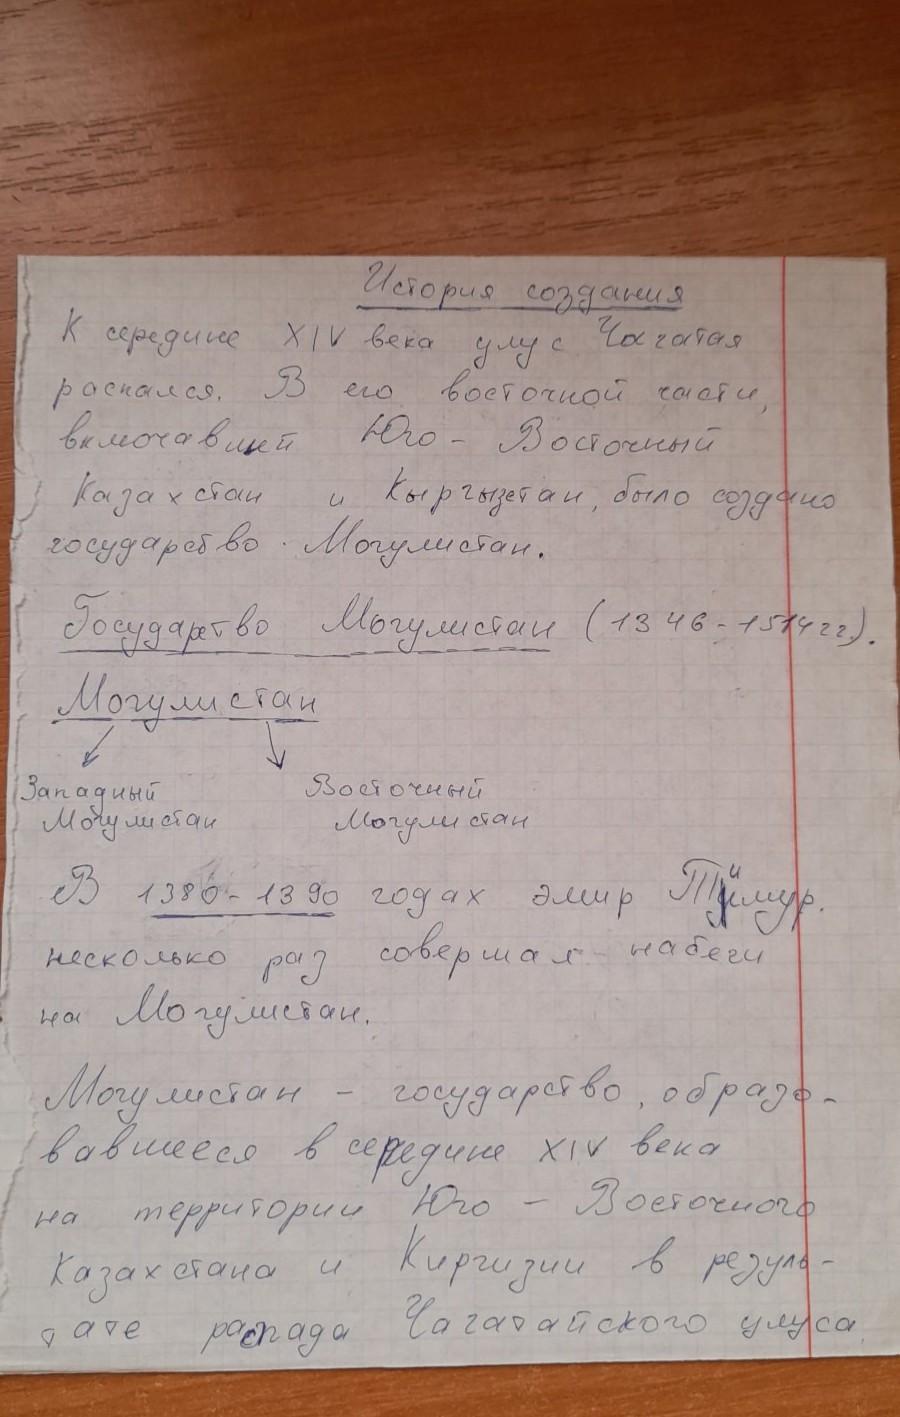 История создания
К середине XIV века улус Чагатая
распался. В его восточной части,
включавшей Юго - Восточный
Казахстан и Кыргызстан, было создано
государство Могулистан.
Государство Могулистан (1346-1514 гг.).
Могулистан
Западный Восточный
Могулистан Могулистан
В 1380-1390 годах эмир Тимур
несколько раз совершал набеги
на Могулистан.
Могулистан - государство, образо-
вавшееся в середине XIV века
на территории Юго - Восточного
Казахстана и Киргизии в резуль-
тате распада Чагатайского улуса